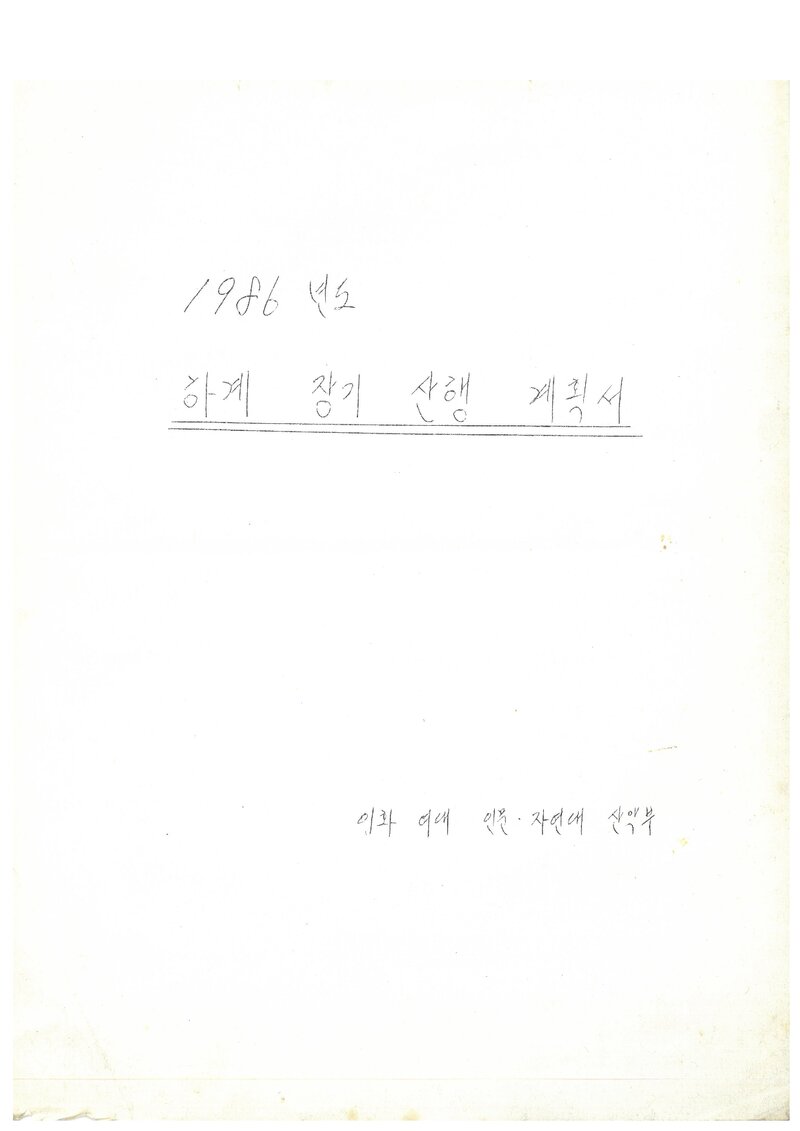 1986 년도
하계 장기 산행 계획서
이화 여대 인문·자연대 산악부